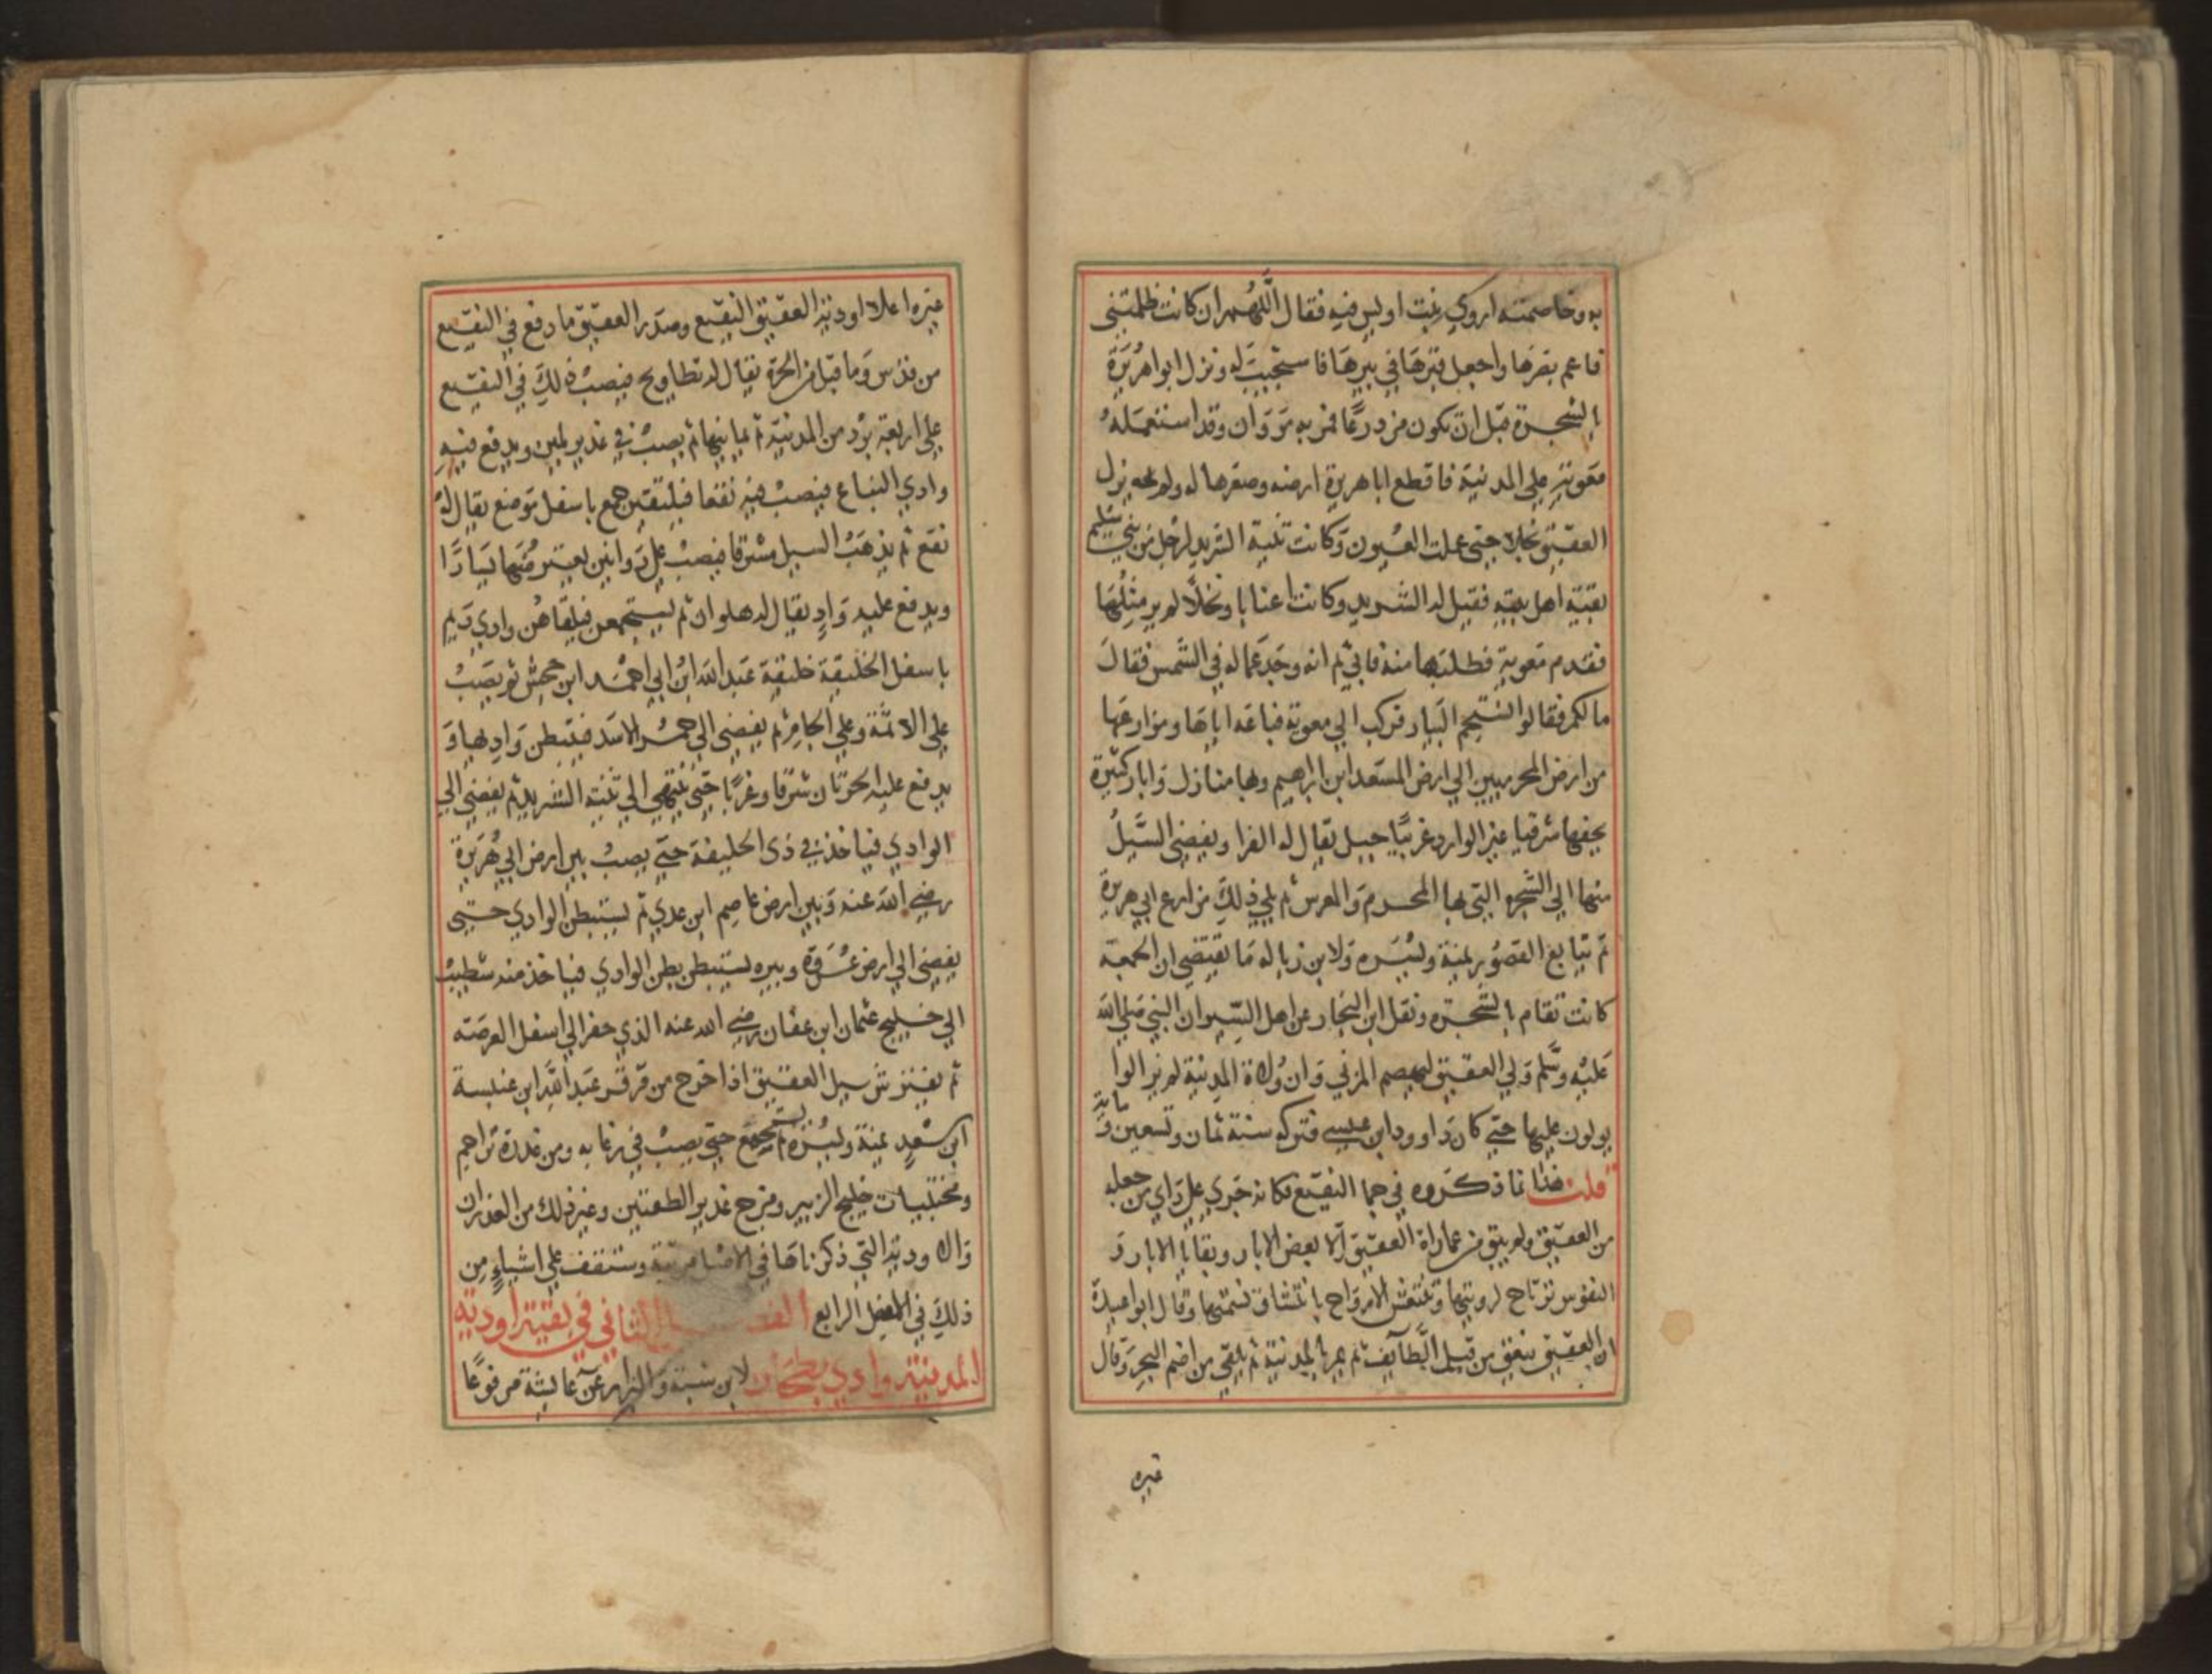 به وخاصمته اروي بنت اويس فيه فقال اللهم ان كانت ظلمتني
فاعم بصرها واجعل قبرها في بيرها فاستجيب له ونزل ابو اهريرة
بالشجرة قبل ان تكون مزدرعا فمر به مروان وقد استعمله
معوية علي المدنية فاقطع اباهريرة ارضه وضفرها له ولم يزل
العقيق نخلا حتي عملت العيون وكانت ثنية الشريد لرجل من بني سليم
بقية اهل بيته فقيل له الشريد وكانت اعنابا ونخلا لم ير مثلها
فقدم معوية فطلبها منه فابي ثم انه وجد عماله في الشمس فقال
ما لكم فقالوا نستجم البيار فركب الي معوية فباعه اياها ومزارعها
من ارض المحرميين الي ارض المسعد ابن ابراهيم وبها منازل وابار كثيرة
يحفها شرقيا عير الوارد وغربيا جبيل يقال له الفرا ويفضي السيل
منها الي الشجره التي بها المحرم والمعرس ثم يلي ذلك مزارع ابي هريرة
ثم تتابع القصور يمنة ويسره ولابن زباله ما يقتضي ان الجمعة
كانت تقام بالشجره ونقل ابن النجار عن اهل السير ان النبي صلي الله
عليه وسلم ولي العقيق لهيصم المزني وان ولاة المدينة لم يزالوا
يولون عليها حتي كان داوود ابن عيسي فتركه سنة ثمان وتسعين وماية
قلت هذا انما ذكروه في حما النقيع فكانه جري علي راي من جعله
من العقيق ولم يبق من عماراة العقيق الا بعض الابار وبقايا الابار و
النفوس ترتاح لرويتها وتنتعش الارواح بانتشاق نسمتها وقال ابو عبيدة
ان العقيق ينعق من قبل الطآيف ثم يمر بالمدنية ثم يلقي من اضم البحر وقال
غيره
غيره اعلا اودية العقيق النقيع وصدر العقيق ما دفع في النقيع
من قدس وما قبل من الحرة يقال له بطاويح فيصب ذلك في النقيع
علي اربعة برد من المدنية ثم يصب في غدير يلبن ويدفع فيه
وادي البقاع فيصب فيه نقعا فيلتقين جمع باسفل موضع يقال له
نقع ثم يذهب السيل مشرقا فيصب علي
ويدفع عليه واد يقال له هلوان ثم يستجمعن فيلقاهن وادي ريم
باسفل الخليقة خليقة عبد الله ابن ابي احمد ابن جحش ثم يصب
علي الاتمة وعلي الجام ثم يفضي الي حمر الاسد فيستبطن واديها و
يدفع عليه الحرتان شرقا وغربا حتي ينتهي الي ثنية الشريد ثم يفضي الي
الوادي فياخذ في ذي الحليفة حتي يصب بين ارض ابي هريرة
رضي الله عنه وبين ارض عاصم ابن عدي ثم يستبطن الوادي حتي
يفضي الي ارض عروة وبيره يستبطن بطن الوادي فياخذ منه شطيب
الي خليج عثمان ابن عفان رضي الله عنه الذي حفر الي اسفل العرصة
ثم يفترش سيل العقيق اذا خرج من قرقر عبد الله ابن عنبسة
ابن سعيد يمنة ويسره ثم يستجمع حتي يصب في زغابه ومن غدرة تراهم
ومختبيات خليج الزبير ومزج غدير الطفيتين وغير ذلك من الغدران
والاودية التي ذكرناها في الاصل مرتبة وستقف علي اشياء من
ذلك في الفصل الرابع الفصل الثاني في بقية اودية
المدنية وادي بطحان لابن شبة والبزار عن عايشة مرفوعا